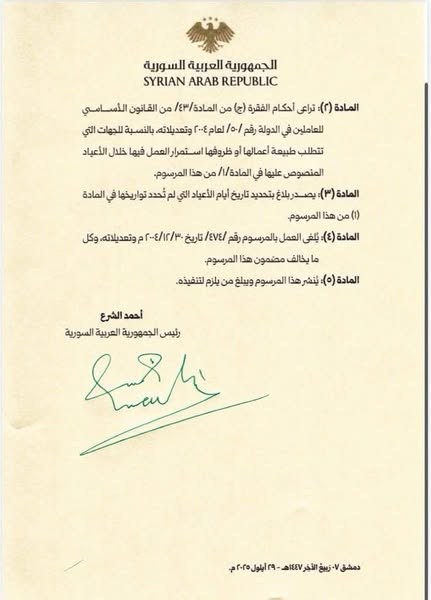 الجمهورية العربية السورية
SYRIAN ARAB REPUBLIC
المادة (٢): تراعى أحكام الفقرة (ج) من المادة /٤٣/ من القانون الأساسي
للعاملين في الدولة رقم /٥٠/ لعام ٢٠٠٤ وتعديلاته، بالنسبة للجهات التي
تتطلب طبيعة أعمالها أو ظروفها استمرار العمل فيها خلال الأعياد
المنصوص عليها في المادة /١/ من هذا المرسوم.
المادة (٣): يصدر بلاغ بتحديد تاريخ أيام الأعياد التي لم تُحدد تواريخها في المادة
(١) من هذا المرسوم.
المادة (٤): يُلغى العمل بالمرسوم رقم /٤٧٤/ تاريخ ٢٠٠٤/١٢/٣٠ م وتعديلاته، وكل
ما يخالف مضمون هذا المرسوم.
المادة (٥): يُنشر هذا المرسوم ويبلغ من يلزم لتنفيذه.
أحمد الشرع
رئيس الجمهورية العربية السورية
دمشق ٠٧ رَبيعُ الآخِر ١٤٤٧هـ - ٢٩ أيلول ٢٠٢٥ م.